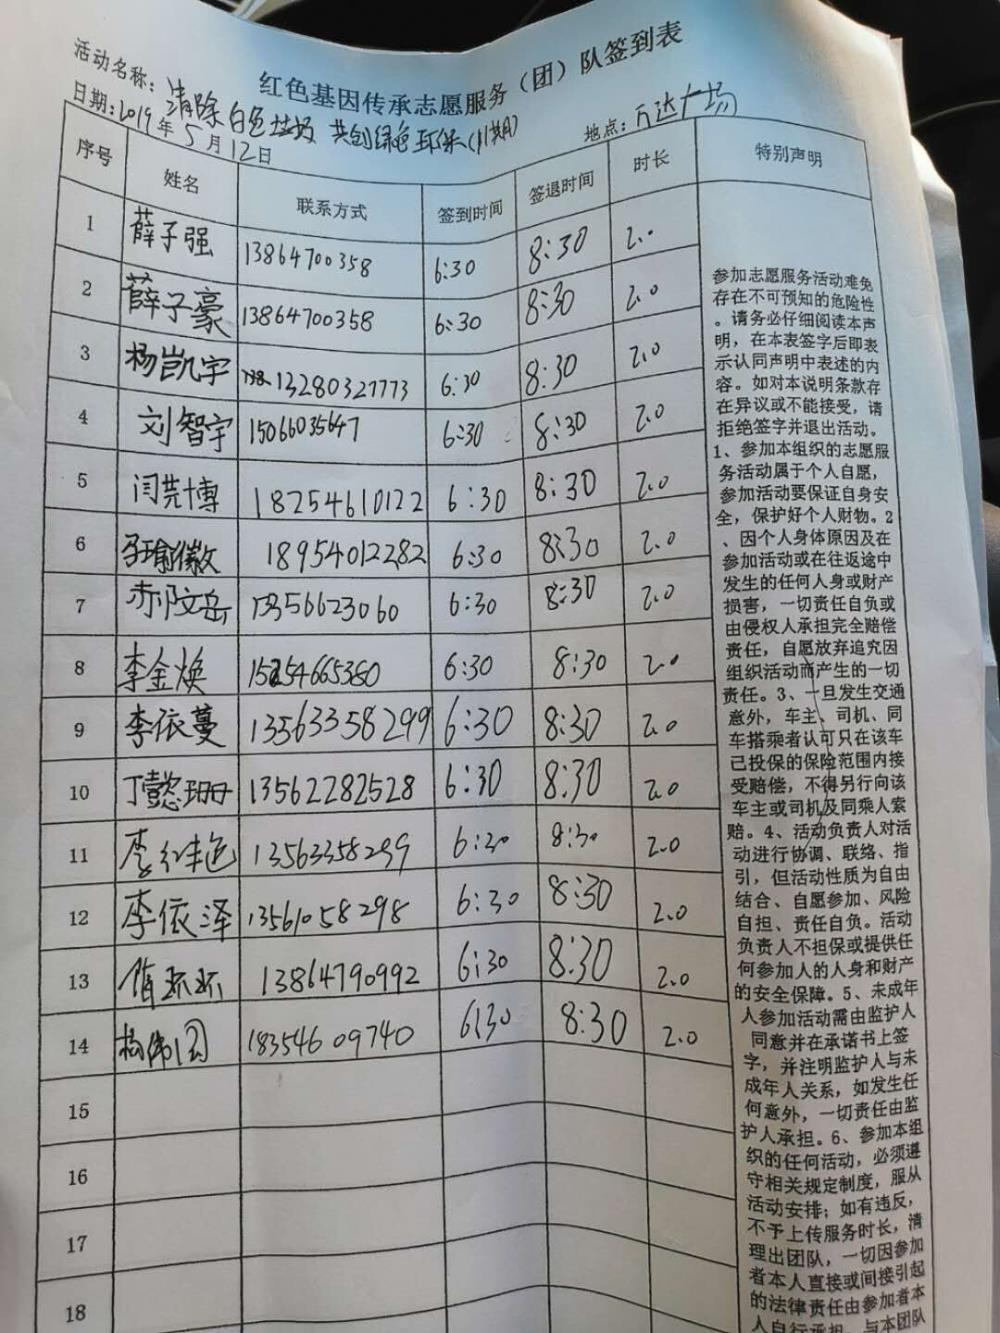 红色基因传承志愿服务（团）队签到表
活动名称：清除白色垃圾 共创绿色环保(11期)
日期：2019年5月12日 地点：万达广场
序号 姓名 联系方式 签到时间 签退时间 时长 特别声明
1 薛子强 13864700358 6:30 8:30 2.0
2 薛子豪 13864700358 6:30 8:30 2.0
3 杨凯宇 13280327773 6:30 8:30 2.0
4 刘智宇 15066035647 6:30 8:30 2.0
5 闫芫博 18254610122 6:30 8:30 2.0
6 18954012282 6:30 8:30 2.0
7 6:30 8:30 2.0
8 李金焕 15254665380 6:30 8:30 2.0
9 李依蔓 13563358299 6:30 8:30 2.0
10 丁懿珊 13562282528 6:30 8:30 2.0
11 李红艳 13563358299 6:30 8:30 2.0
12 李依泽 13561058298 6:30 8:30 2.0
13 13864790992 6:30 8:30 2.0
14 18354609740 6:30 8:30 2.0
15
16
17
18
参加志愿服务活动难免
存在不可预知的危险性
。请务必仔细阅读本声
明，在本表签字后即表
示认同声明中表述的内
容。如对本说明条款存
在异议或不能接受，请
拒绝签字并退出活动。
1、参加本组织的志愿服
务活动属于个人自愿，
参加活动要保证自身安
全，保护好个人财物。2
、因个人身体原因及在
参加活动或在往返途中
发生的任何人身或财产
损害，一切责任自负或
由侵权人承担完全赔偿
责任，自愿放弃追究因
组织活动而产生的一切
责任。3、一旦发生交通
意外，车主、司机、同
车搭乘者认可只在该车
已投保的保险范围内接
受赔偿，不得另行向该
车主或司机及同乘人索
赔。4、活动负责人对活
动进行协调、联络、指
引，但活动性质为自由
结合、自愿参加、风险
自担、责任自负。活动
负责人不担保或提供任
何参加人的人身和财产
的安全保障。5、未成年
人参加活动需由监护人
同意并在承诺书上签
字，并注明监护人与未
成年人关系，如发生任
何意外，一切责任由监
护人承担。6、参加本组
织的任何活动，必须遵
守相关规定制度，服从
活动安排；如有违反，
不予上传服务时长，清
理出团队，一切因参加
者本人直接或间接引起
的法律责任由参加者本
人自行承担，与本团队